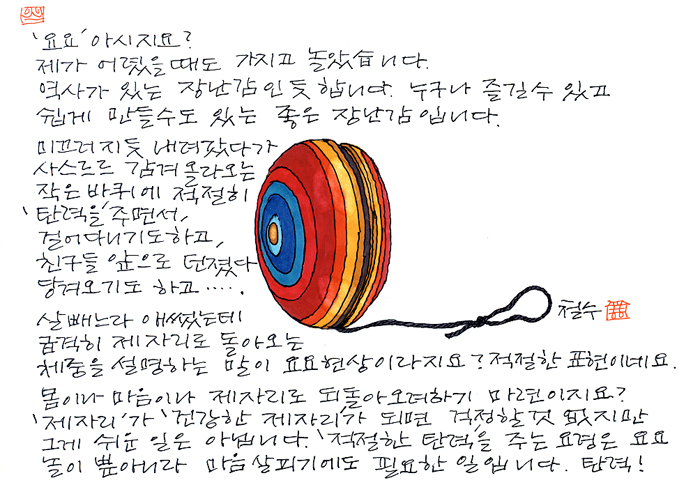 '요요' 아시지요?
제가 어렸을때도 가지고 놀았습니다.
역사가 있는 장난감인듯 합니다. 누구나 즐길수 있고
쉽게 만들수도 있는 좋은 장난감 입니다.
미끄러지듯 내려갔다가
사스르르 감겨올라오는
작은바퀴에 적절히
'탄력을' 주면서,
걸어다니기도하고,
친구들 앞으로 던졌다
당겨오기도 하고‥‥.
살빼느라 애썼는데
급격히 제자리로 돌아오는
체중을 설명하는 말이 요요현상이라지요? 적절한 표현이네요.
몸이나 마음이나 제자리로 되돌아오려하기 마련이지요?
'제자리'가 '건강한 제자리'가 되면 걱정할것 없지만
그게 쉬운 일은 아닙니다. '적절한 탄력'을 주는 요령은 요요
놀이 뿐아니라 마음살피기에도 필요한 일입니다. 탄력!
철수